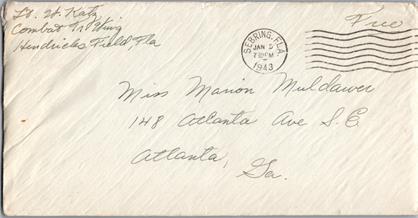 Lt. W. Katz
Combat Crl Wing
Hendricks Field, Fla
SEBRING, FLA.
JAN
7 PM
1943
Free
Miss Marion Muldawer
148 Atlanta Ave S.E.
Atlanta,
Ga.